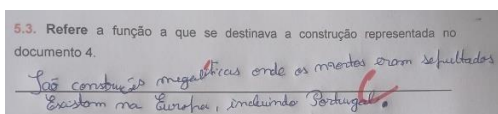 5.3. Refere a função a que se destinava a construção representada no
documento 4.
São construções megalíticas onde os mortos eram sepultados
Existem na Europa, incluindo Portugal.